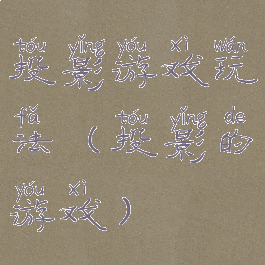 tóu yǐng yóu xì wán
投影游戏玩
fǎ tóu yǐng de
法（投影的
yóu xì
游戏）